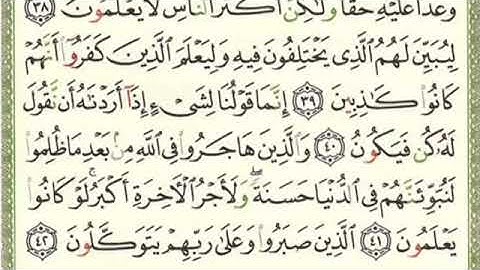 وَعْدًا عَلَيْهِ حَقًّا وَلَٰكِنَّ أَكْثَرَ ٱلنَّاسِ لَا يَعْلَمُونَ ٣٨
لِيُبَيِّنَ لَهُمُ ٱلَّذِى يَخْتَلِفُونَ فِيهِ وَلِيَعْلَمَ ٱلَّذِينَ كَفَرُوٓا۟ أَنَّهُمْ
كَانُوا۟ كَٰذِبِينَ ٣٩ إِنَّمَا قَوْلُنَا لِشَىْءٍ إِذَآ أَرَدْنَٰهُ أَن نَّقُولَ
لَهُۥ كُن فَيَكُونُ ٤٠ وَٱلَّذِينَ هَاجَرُوا۟ فِى ٱللَّهِ مِنۢ بَعْدِ مَا ظُلِمُوا۟
لَنُبَوِّئَنَّهُمْ فِى ٱلدُّنْيَا حَسَنَةً ۖ وَلَأَجْرُ ٱلْـَٔاخِرَةِ أَكْبَرُ ۚ لَوْ كَانُوا۟
يَعْلَمُونَ ٤١ ٱلَّذِينَ صَبَرُوا۟ وَعَلَىٰ رَبِّهِمْ يَتَوَكَّلُونَ ٤٢